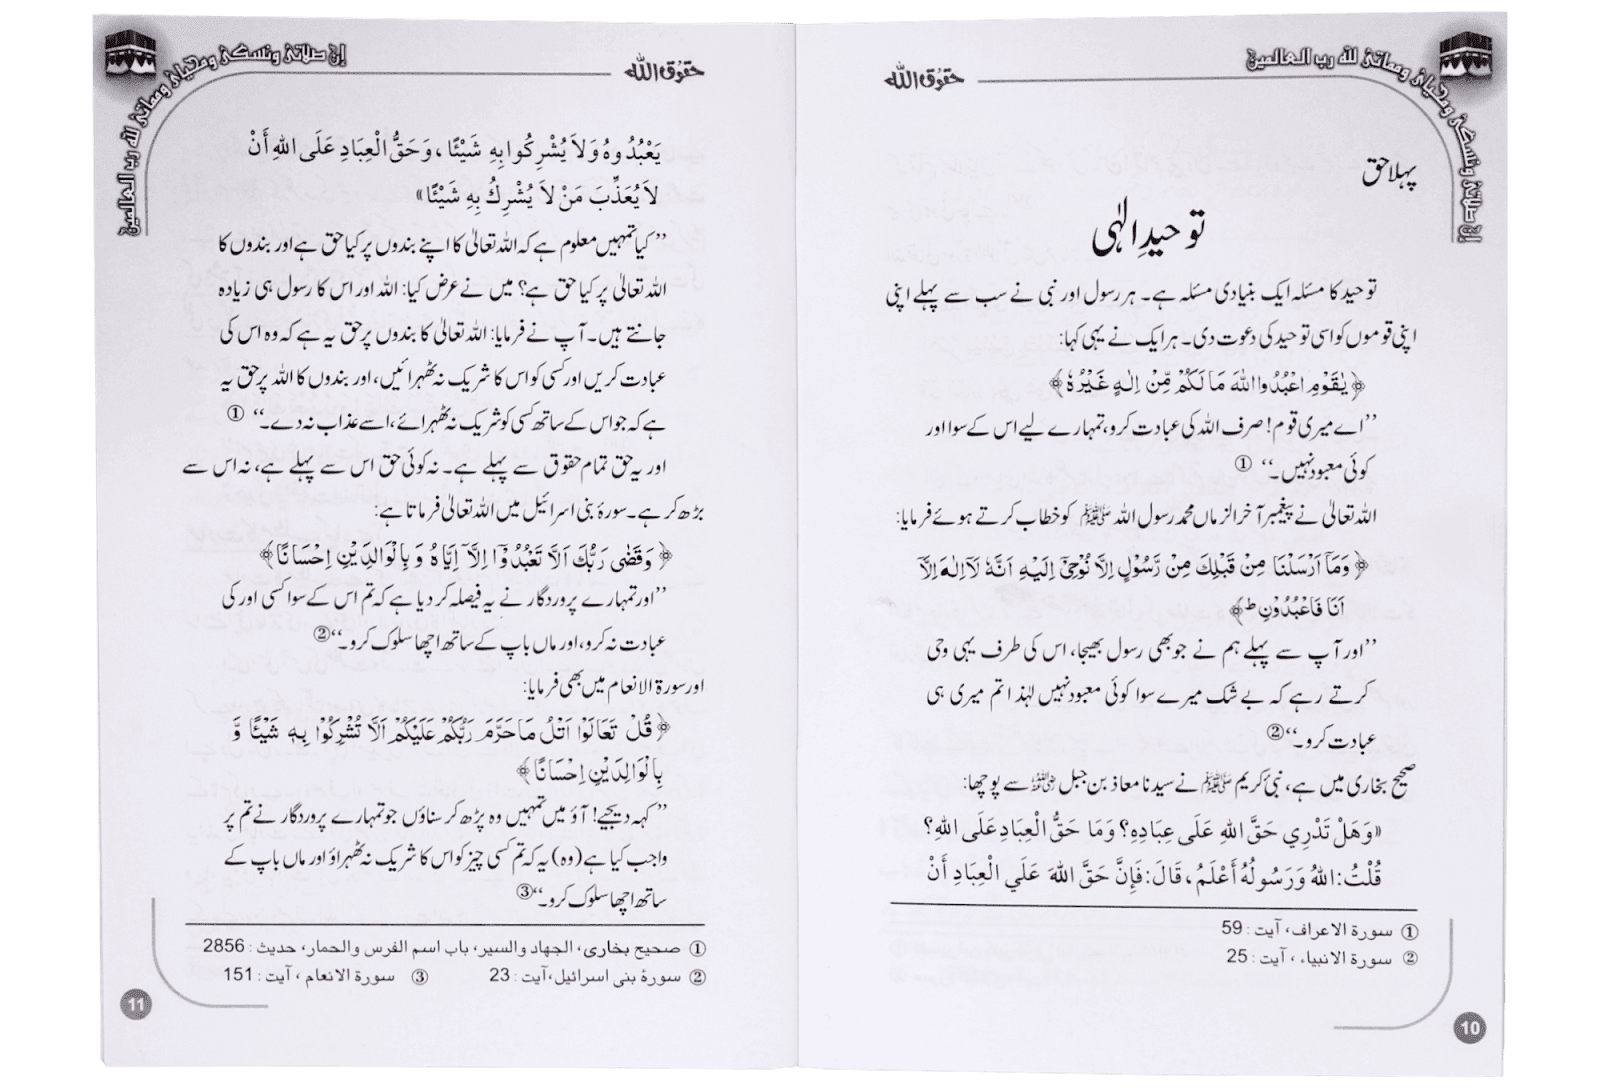 حقوق اللہ
إن صلاتي ونسكي ومحياي ومماتي لله رب العالمين
پہلا حق
توحیدِ الٰہی
توحید کا مسئلہ ایک بنیادی مسئلہ ہے۔ ہر رسول اور نبی نے سب سے پہلے اپنی
اپنی قوموں کو اسی توحید کی دعوت دی۔ ہر ایک نے یہی کہا:
﴿يٰقَوْمِ اعْبُدُوا اللّٰهَ مَا لَكُمْ مِّنْ اِلٰهٍ غَيْرُهٗ﴾
’’اے میری قوم! صرف اللہ کی عبادت کرو، تمہارے لیے اس کے سوا اور
کوئی معبود نہیں۔‘‘ ①
اللہ تعالیٰ نے پیغمبر آخر الزماں محمد رسول اللہ ﷺ کو خطاب کرتے ہوئے فرمایا:
﴿وَمَآ اَرْسَلْنَا مِنْ قَبْلِكَ مِنْ رَّسُوْلٍ اِلَّا نُوْحِيْٓ اِلَيْهِ اَنَّهٗ لَآ اِلٰهَ اِلَّآ
اَنَا فَاعْبُدُوْنِ ط﴾
’’اور آپ سے پہلے ہم نے جو بھی رسول بھیجا، اس کی طرف یہی وحی
کرتے رہے کہ بے شک میرے سوا کوئی معبود نہیں لہٰذا تم میری ہی
عبادت کرو۔‘‘②
صحیح بخاری میں ہے، نبیٔ کریم ﷺ نے سیدنا معاذ بن جبل رضی اللہ عنہ سے پوچھا:
«وَهَلْ تَدْرِي حَقَّ اللهِ عَلَى عِبَادِهِ؟ وَمَا حَقُّ الْعِبَادِ عَلَى اللهِ؟
قُلْتُ: اللهُ وَرَسُولُهُ أَعْلَمُ، قَالَ: فَإِنَّ حَقَّ اللهِ عَلَي الْعِبَادِ أَنْ
① سورة الاعراف، آيت : 59
② سورة الانبياء، آيت : 25
10
حقوق اللہ
إن صلاتي ونسكي ومحياي ومماتي لله رب العالمين
يَعْبُدُوهُ وَلاَ يُشْرِكُوا بِهِ شَيْئًا، وَحَقُّ الْعِبَادِ عَلَى اللهِ أَنْ
لاَ يُعَذِّبَ مَنْ لاَ يُشْرِكُ بِهِ شَيْئًا»
’’کیا تمہیں معلوم ہے کہ اللہ تعالیٰ کا اپنے بندوں پر کیا حق ہے اور بندوں کا
اللہ تعالیٰ پر کیا حق ہے؟ میں نے عرض کیا: اللہ اور اس کا رسول ہی زیادہ
جانتے ہیں۔ آپ نے فرمایا: اللہ تعالیٰ کا بندوں پر حق یہ ہے کہ وہ اس کی
عبادت کریں اور کسی کو اس کا شریک نہ ٹھہرائیں، اور بندوں کا اللہ پر حق یہ
ہے کہ جو اس کے ساتھ کسی کو شریک نہ ٹھہرائے، اسے عذاب نہ دے۔‘‘ ①
اور یہ حق تمام حقوق سے پہلے ہے۔ نہ کوئی حق اس سے پہلے ہے، نہ اس سے
بڑھ کر ہے۔ سورۂ بنی اسرائیل میں اللہ تعالیٰ فرماتا ہے:
﴿وَقَضٰى رَبُّكَ اَلَّا تَعْبُدُوْٓا اِلَّآ اِيَّاهُ وَ بِالْوَالِدَيْنِ اِحْسَانًا﴾
’’اور تمہارے پروردگار نے یہ فیصلہ کر دیا ہے کہ تم اس کے سوا کسی اور کی
عبادت نہ کرو، اور ماں باپ کے ساتھ اچھا سلوک کرو۔‘‘②
اور سورۃ الانعام میں بھی فرمایا:
﴿قُلْ تَعَالَوْا اَتْلُ مَا حَرَّمَ رَبُّكُمْ عَلَيْكُمْ اَلَّا تُشْرِكُوْا بِهٖ شَيْئًا وَّ
بِالْوَالِدَيْنِ اِحْسَانًا﴾
’’کہہ دیجیے! آؤ میں تمہیں وہ پڑھ کر سناؤں جو تمہارے پروردگار نے تم پر
واجب کیا ہے (وہ) یہ کہ تم کسی چیز کو اس کا شریک نہ ٹھہراؤ اور ماں باپ کے
ساتھ اچھا سلوک کرو۔‘‘③
① صحيح بخارى، الجهاد والسير، باب اسم الفرس والحمار، حديث : 2856
② سورۂ بنى اسرائيل، آيت : 23 ③ سورة الانعام ، آيت : 151
11